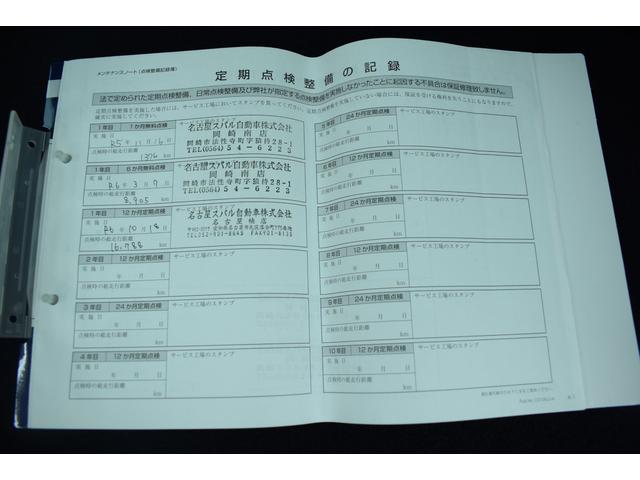 メンテナンスノート(点検整備記録簿)
定期点検整備の記録
法で定められた定期点検整備、日常点検整備及び弊社が指定する点検整備を実施しなかったことに起因する不具合は保証修理致しません。
定期点検整備を実施した場合には、サービス工場においてスタンプを貰ってください。定期点検整備を実施していない場合には、保証を受ける権利を失うこともありますので、
確実に実施してください。
1年目 1か月無料点検
サービス工場のスタンプ
実施日
R5年11月16日
点検時の総走行距離
1376 km
名古屋スバル自動車株式会社
岡崎南店
岡崎市法性寺町字猿待28-1
TEL(0564)54-6223
1年目 6か月無料点検
実施日
R6年3月7日
点検時の総走行距離
8,905 km
名古屋スバル自動車株式会社
岡崎南店
岡崎市法性寺町字猿待28-1
TEL(0564)54-6223
1年目 12か月定期点検
サービス工場のスタンプ
実施日
R6年10月18日
点検時の総走行距離
16,788 km
名古屋スバル自動車株式会社
2年目 12か月定期点検
サービス工場のスタンプ
実施日
年 月 日
点検時の総走行距離
km
3年目 24か月定期点検
サービス工場のスタンプ
実施日
年 月 日
点検時の総走行距離
km
4年目 12か月定期点検
サービス工場のスタンプ
実施日
年 月 日
点検時の総走行距離
km
5年目 24か月定期点検
サービス工場のスタンプ
実施日
年 月 日
点検時の総走行距離
km
6年目 12か月定期点検
サービス工場のスタンプ
実施日
年 月 日
点検時の総走行距離
km
7年目 24か月定期点検
サービス工場のスタンプ
実施日
年 月 日
点検時の総走行距離
km
8年目 12か月定期点検
サービス工場のスタンプ
実施日
年 月 日
点検時の総走行距離
km
9年目 24か月定期点検
サービス工場のスタンプ
実施日
年 月 日
点検時の総走行距離
km
10年目 12か月定期点検
サービス工場のスタンプ
実施日
年 月 日
点検時の総走行距離
km